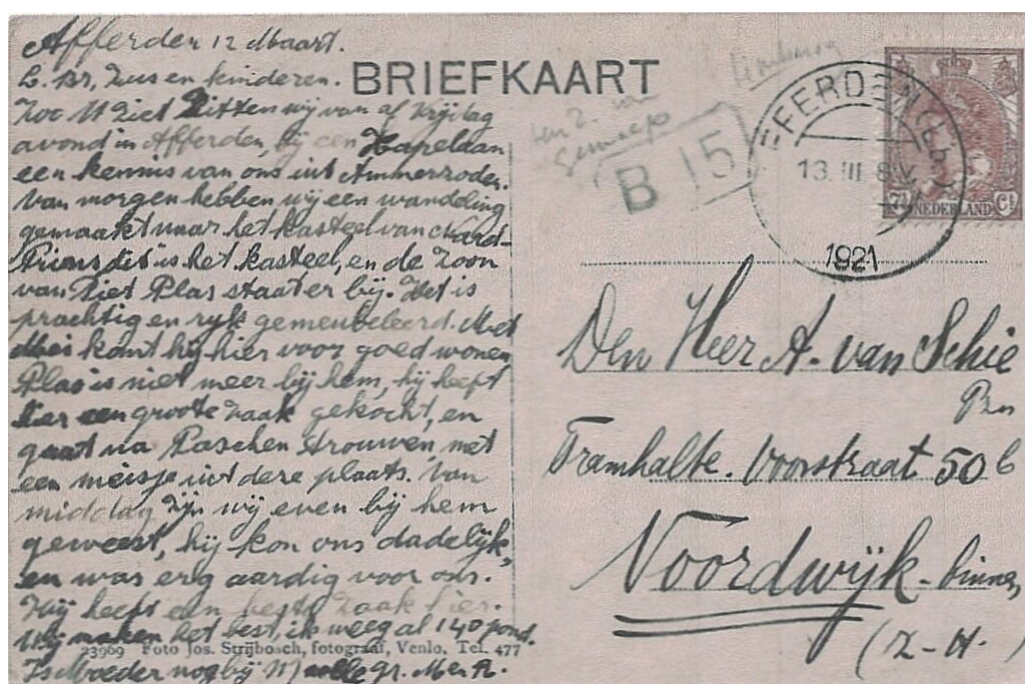 Afferden 12 Maart.
L. Br, Zus en kinderen.
Zoo U ziet zitten wij van af Vrijdag
avond in Afferden, bij een Kapelaan
een kennis van ons uit Ammerzoden.
Van morgen hebben wij een wandeling
gemaakt naar het kasteel van
dit is het kasteel, en de Zoon
van Piet Plas staat er bij. Het is
prachtig en ryk gemeubeleerd. Met
Mei komt hij hier voor goed wonen,
Plas is niet meer bij hem, hij heeft
hier een groote zaak gekocht, en
gaat na Paschen trouwen met
een meisje uit deze plaats. Van
middag zijn wij even bij hem
geweest, hij kon ons dadelijk,
en was erg aardig voor ons.
Hij heeft een beste zaak hier.
Wij maken het best, ik weeg al 140 pond.
Is Moeder nog bij U gr. M en A.
23969 Foto Jos. Strijbosch, fotograaf, Venlo, Tel. 477
BRIEFKAART
Limburg
van
Gennep
B 15
FFERDEN (Lb.)
13.III 8V
1921
7½ Ct
NEDERLAND
Den Heer A. van Schie
Bn
Tramhalte. Voorstraat 50 b
Noordwijk-binnen,
(Z-H.)